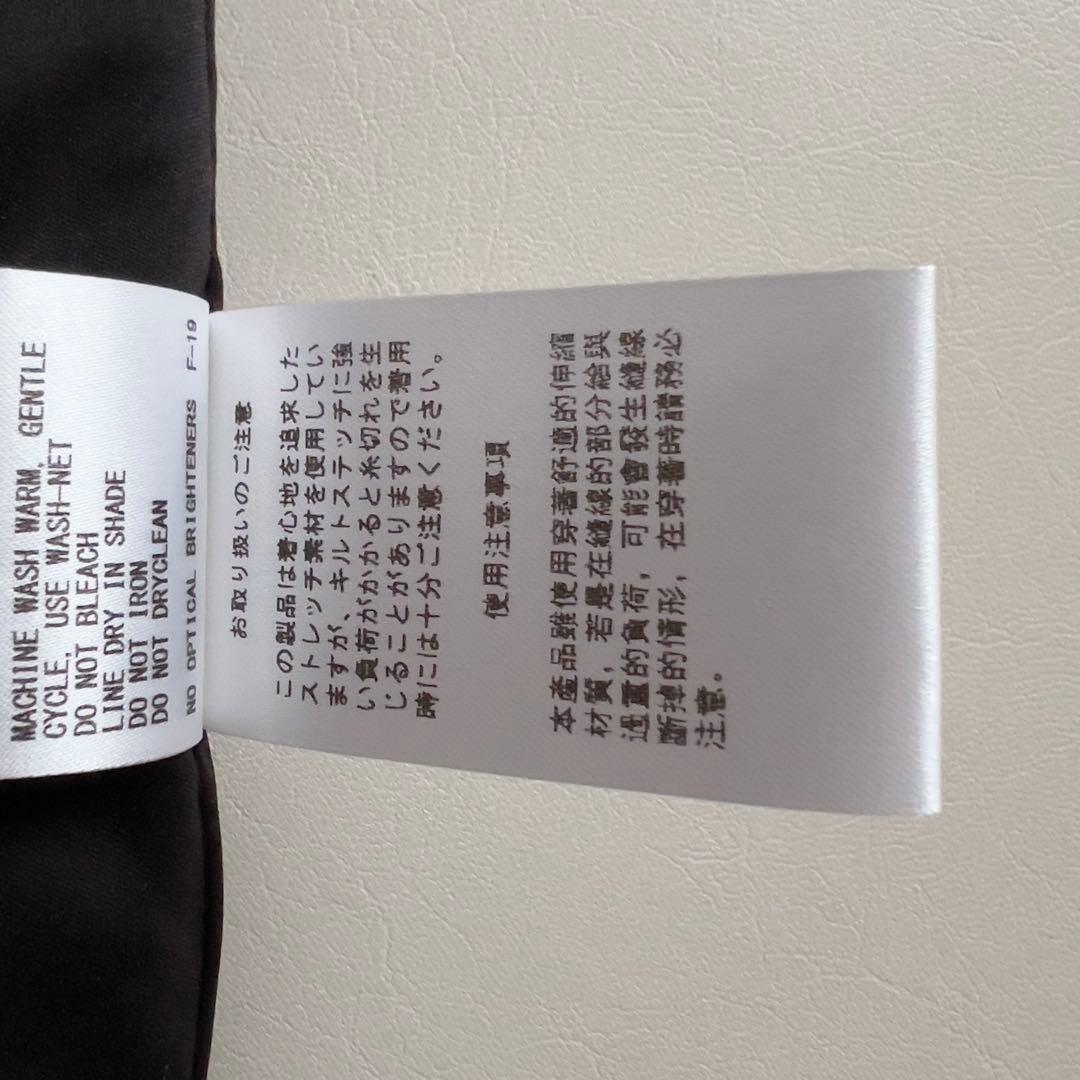 MACHINE WASH WARM, GENTLE
CYCLE, USE WASH-NET
DO NOT BLEACH
LINE DRY IN SHADE
DO NOT IRON
DO NOT DRYCLEAN
NO OPTICAL BRIGHTENERS F-19
お取り扱いのご注意
この製品は着心地を追求した
ストレッチ素材を使用してい
ますが、キルトステッチに強
い負荷がかかると糸切れを生
じることがありますので着用
時には十分ご注意ください。
使用注意事項
本產品雖使用穿著舒適的伸縮
材質，若是在縫線的部分給與
過重的負荷，可能會發生縫線
斷掉的情形，在穿著時請務必
注意。